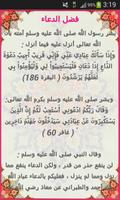 3:19
فضل الدعاء
يبشر رسول الله صلى الله عليه وسلم أمته بأن
الله تعالى أنزل عليه فيما أنزل :
وَإِذَا سَأَلَكَ عِبَادِي عَنِّي فَإِنِّي قَرِيبٌ أُجِيبُ دَعْوَةَ
الدَّاعِ إِذَا دَعَانِ فَلْيَسْتَجِيبُوا لِي وَلْيُؤْمِنُوا بِي
لَعَلَّهُمْ يَرْشُدُونَ ( البقرة 186 )
ويبشر صلى الله عليه وسلم أمته بأن الله
تعالى قال :
وَقَالَ رَبُّكُمُ ادْعُونِي أَسْتَجِبْ لَكُمْ إِنَّ الَّذِينَ
يَسْتَكْبِرُونَ عَنْ عِبَادَتِي سَيَدْخُلُونَ جَهَنَّمَ
دَاخِرِينَ ( غافر 60 )
وقال النبي صلى الله عليه وسلم :